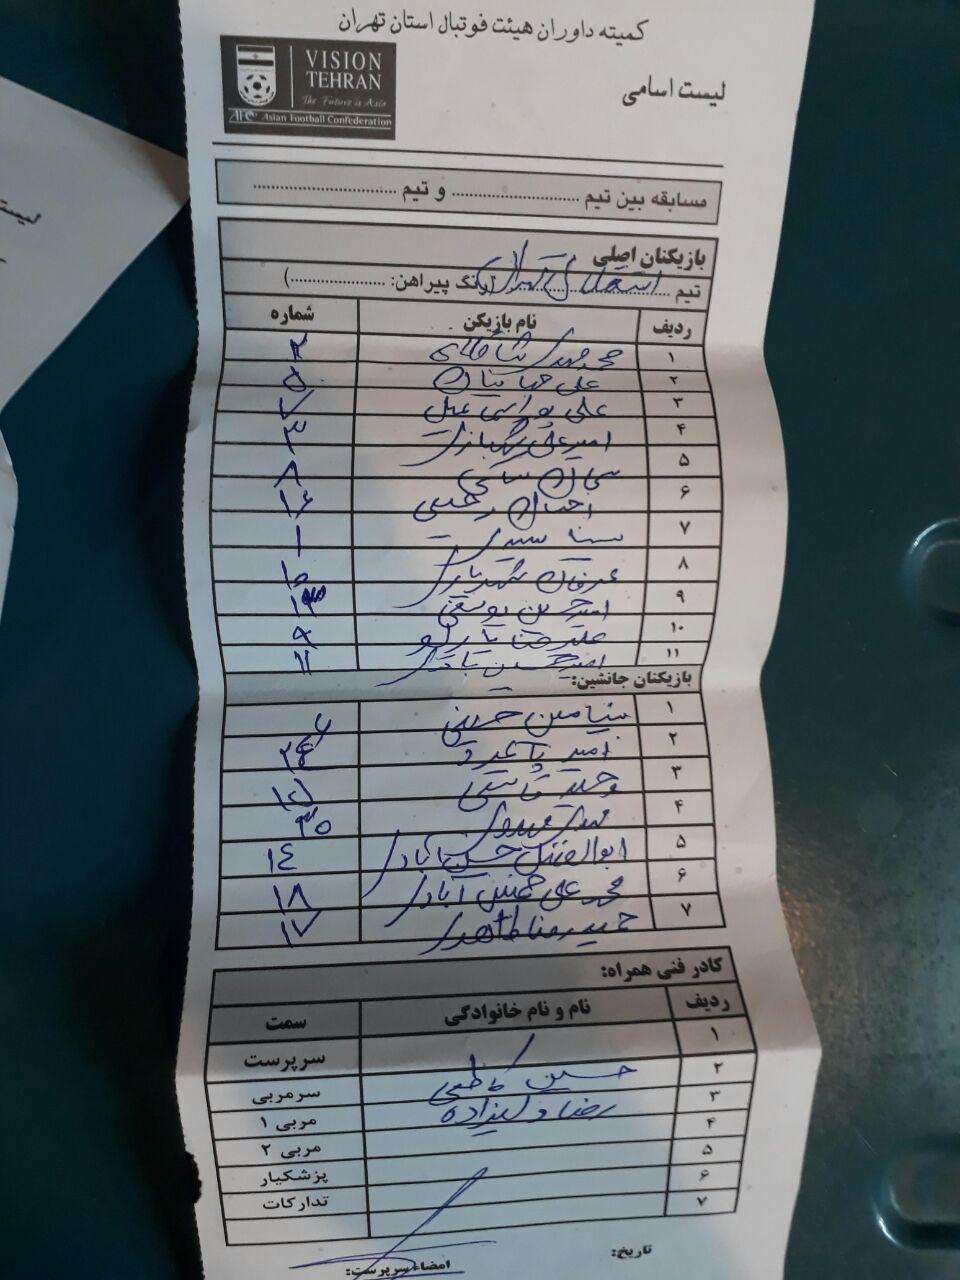 کمیته داوران هیئت فوتبال استان تهران
VISION
TEHRAN
The Future is Asia
AFC Asian Football Confederation
لیست اسامی
مسابقه بین تیم .............................. و تیم ..............................
بازیکنان اصلی
تیم استقلال تهران (رنگ پیراهن: ....................)
ردیف نام بازیکن شماره
۱ محمدمهدی ۲
۲ علی ۵
۳ علی پوراسماعیل ۷
۴ امیرعلی شهبازی ۳
۵ ۸
۶ رحیمی ۱۶
۷ سینا سیدی ۱
۸ عرفان شهریاری ۱۰
۹ امیرحسین یوسفی
۱۰ علیرضا ۹
۱۱ امیرحسین باقری ۱۱
بازیکنان جانشین:
۱ بنیامین حسینی
۲ امیر
۳ وحید ۱۵
۴ مهدی ۳۰
۵ ابوالفضل حسن آبادی ۱۴
۶ محمدعلی آبادی ۱۸
۷ حمیدرضا طاهری ۱۷
کادر فنی همراه:
ردیف نام و نام خانوادگی سمت
۱ سرپرست
۲ حسین کاظمی سرمربی
۳ رضا ولیزاده مربی ۱
۴ مربی ۲
۵ پزشکیار
۶ تدارکات
۷
تاریخ:
امضاء سرپرست:
لیست